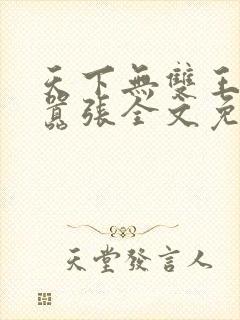 天下無雙王
囂張全文免
天堂發言人